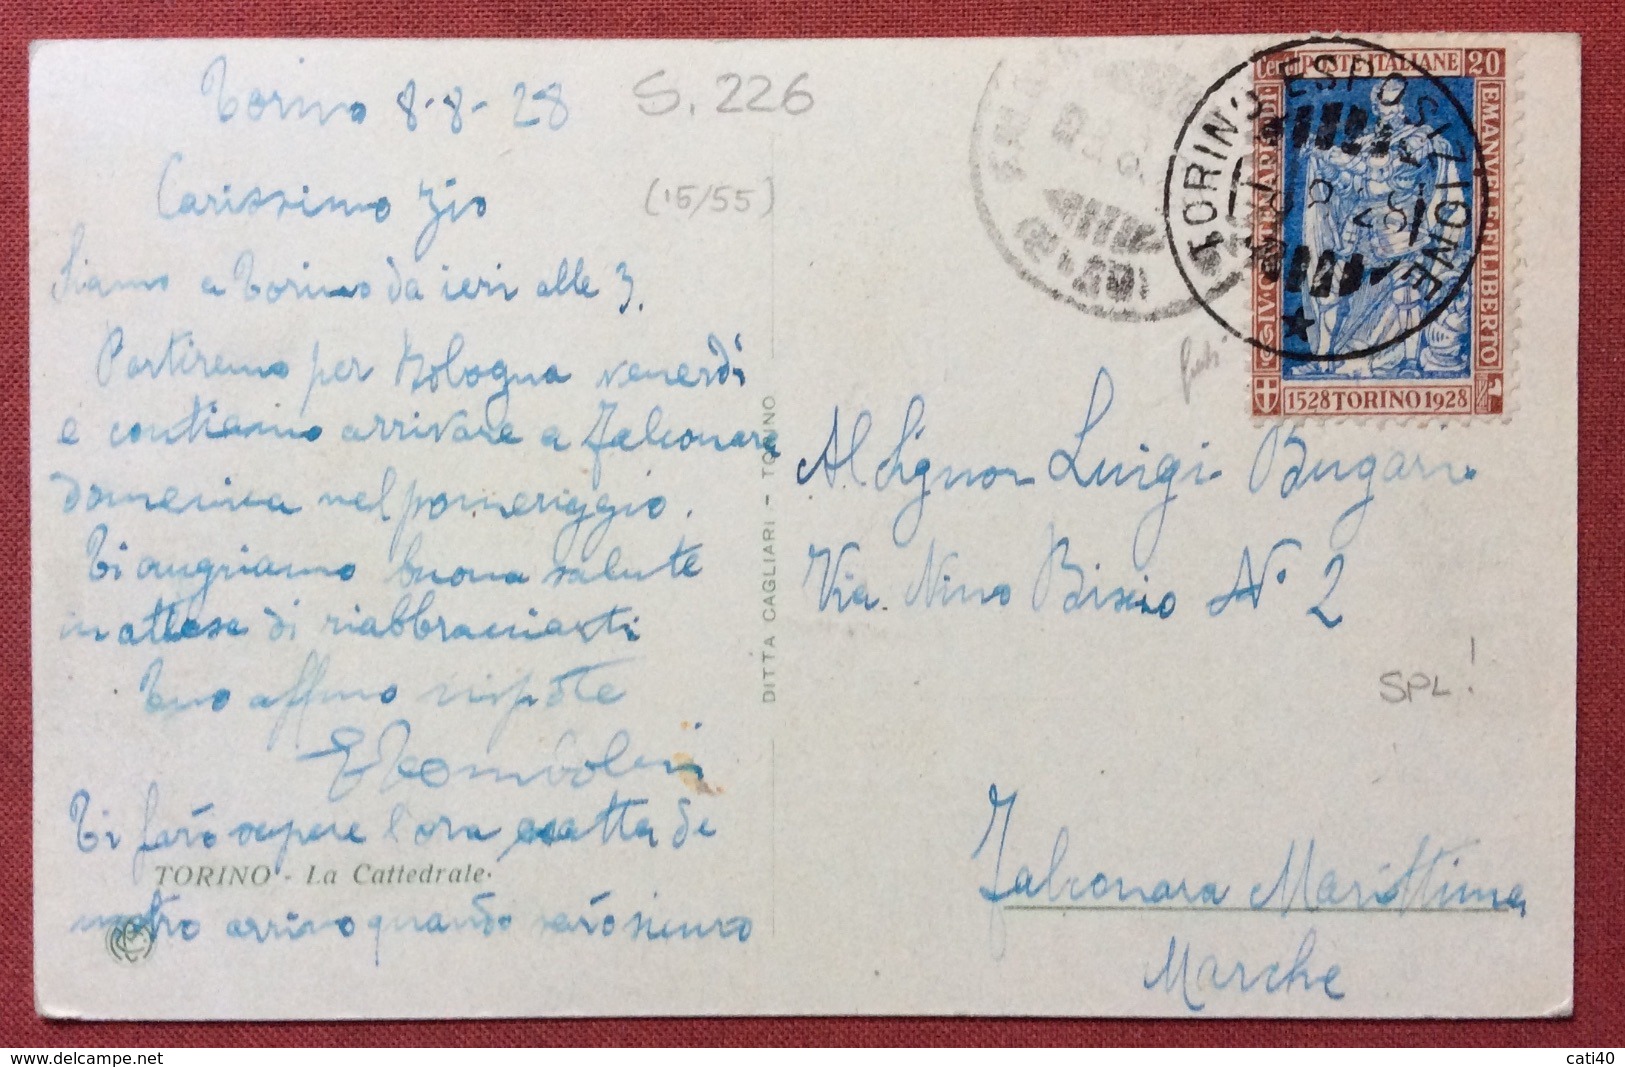 Torino 8-8-28
S. 226
(15/55)
Carissimo zio
Siamo a Torino da ieri alle 3.
Partiremo per Bologna venerdi
e contiamo arrivare a Falconara
domenica nel pomeriggio.
Ti auguriamo buona salute
in attesa di riabbracciarti
Tuo affmo nipote
Ti farò sapere l'ora esatta de
TORINO - La Cattedrale.
nostro arrivo quando sarò sicuro
DITTA CAGLIARI - TORINO
Cent POSTE ITALIANE 20
IV. CENTENARIO DI
EMANVELE FILIBERTO
1528 TORINO 1928
TORINO ESPOSIZIONE
8 8 28
Al Signor Luigi Bugari
Via Nino Bixio N° 2
SPL!
Falconara Marittima
Marche
cati40